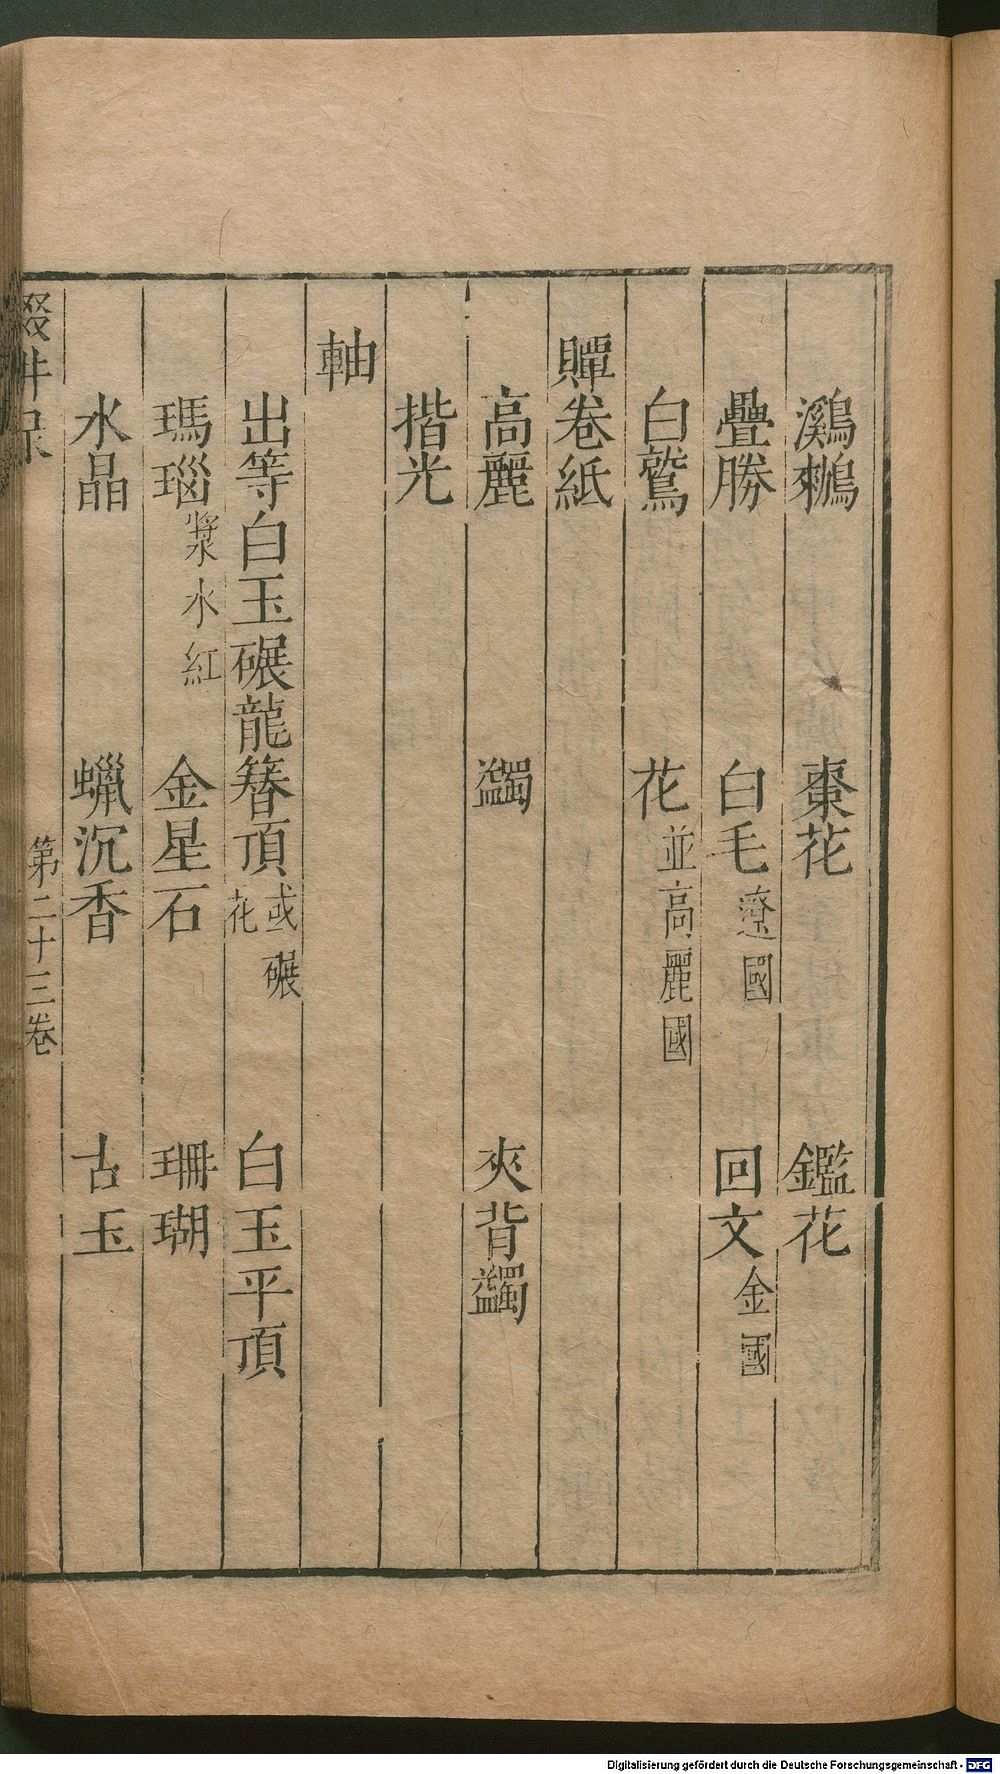 鸂鶒　棗花　鑑花
疊勝　白毛遼國　回文金國
白鷲　花並高麗國
贉卷紙
高麗　蠲　夾背蠲
揩光
軸
出等白玉碾龍簪頂或碾花　白玉平頂
瑪瑙漿水紅　金星石　珊瑚
水晶　蠟沉香　古玉
第二十三卷
Digitalisierung gefördert durch die Deutsche Forschungsgemeinschaft - DFG